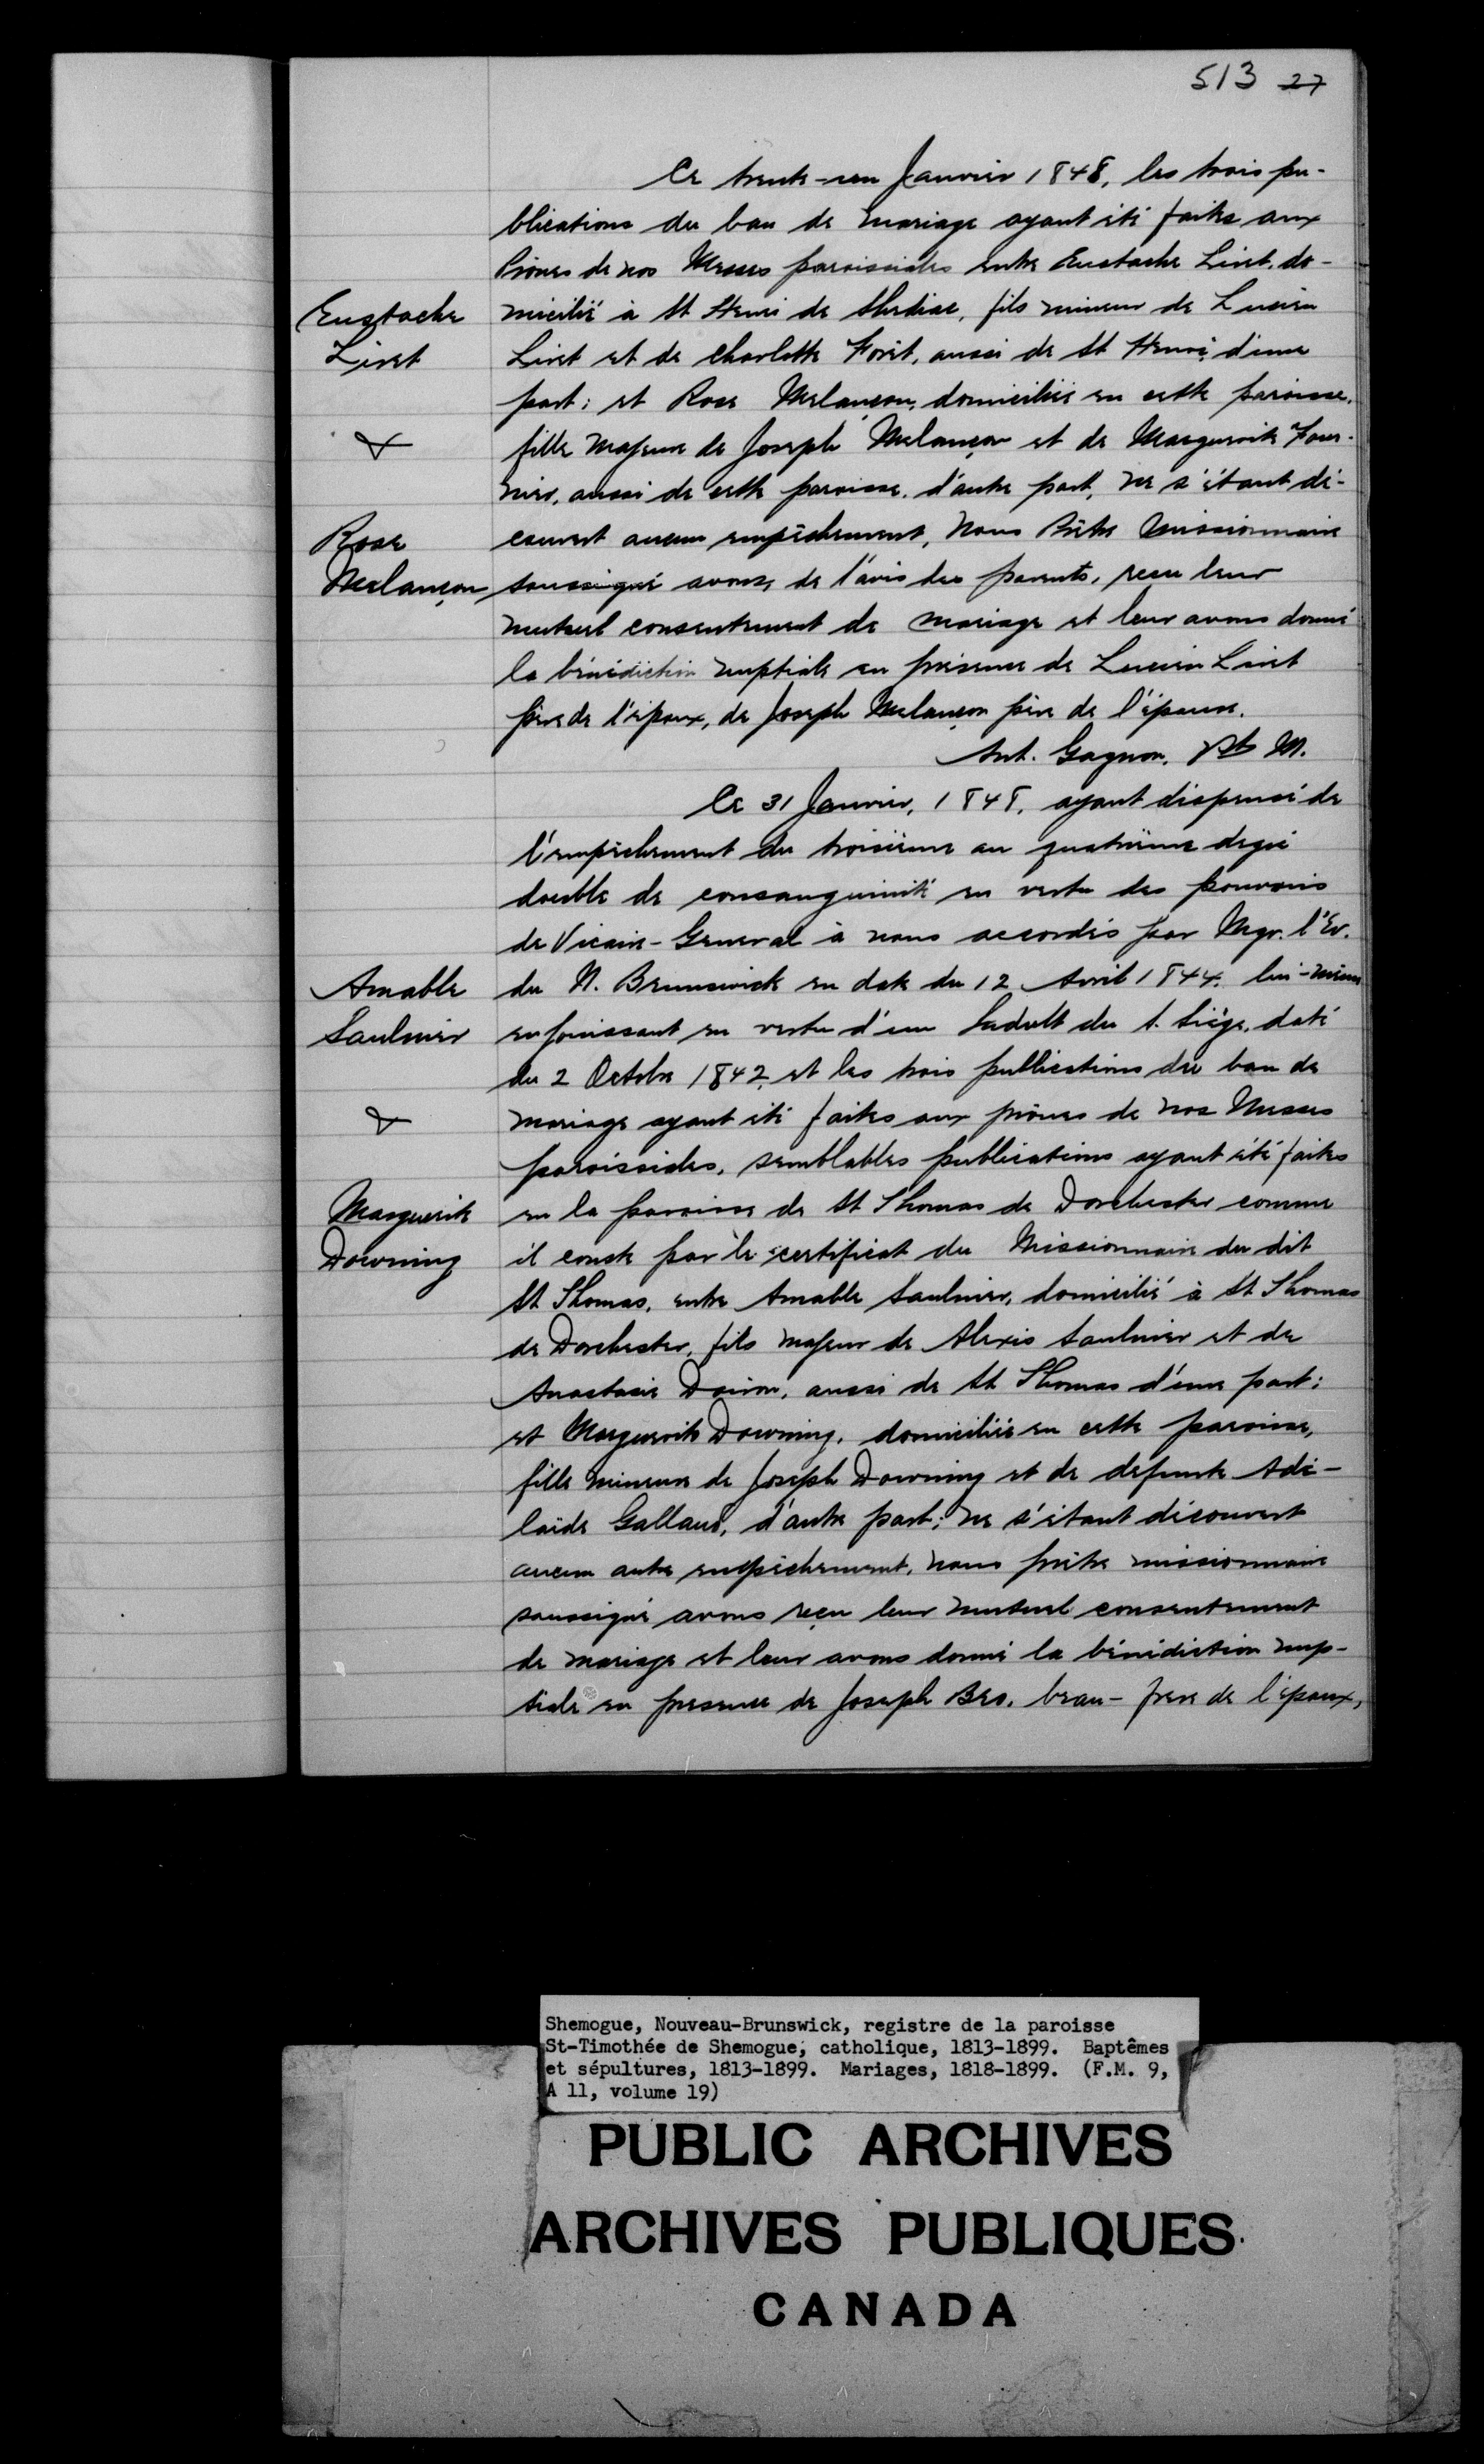 513 27
Ce trente-un Janvier 1848, les trois pu-
blications du ban de mariage ayant été faites aux
Prônes de nos Messes paroissiales entre Eustache Livet, do-
micilié à St Henri de Shediac, fils mineur de Lucien
Livet et de Charlotte Forêt, aussi de St Henri, d'une
part; et Rose Melançon, domiciliée en cette paroisse,
fille majeure de Joseph Melançon et de Marguerite Four-
nier, aussi de cette paroisse, d'autre part, ne s'étant dé-
couvert aucun empêchement, Nous Prêtre Missionnaire
soussigné avons, de l'avis des parents, reçu leur
mutuel consentement de mariage et leur avons donné
la bénédiction nuptiale en présence de Lucien Livet
père de l'époux, de Joseph Melançon père de l'épouse.
Ant. Gagnon, Pt M.
Eustache
Livet
&
Rose
Melançon
Ce 31 Janvier, 1848, ayant dispensé de
l'empêchement du troisième au quatrième degré
double de consanguinité en vertu des pouvoirs
de Vicaire-General à nous accordés par Mgr. l'Ev.
du N. Brunswick en date du 12 Avril 1844, lui-même
en jouissant en vertu d'un Indult du S. Siège, daté
du 2 Octobre 1842, et les trois publications du ban de
mariage ayant été faites aux prônes de nos Messes
paroissiales, semblables publications ayant été faites
en la paroisse de St Thomas de Dorchester comme
il conste par le certificat du Missionnaire du dit
St Thomas, entre Amable Saulnier, domicilié à St Thomas
de Dorchester, fils majeur de Alexis Saulnier et de
Anastasie Doiron, aussi de St Thomas d'une part;
et Marguerite Downing, domiciliée en cette paroisse,
fille mineure de Joseph Downing et de defunte Adé-
laïde Galland, d'autre part; ne s'étant découvert
aucun autre empêchement, nous prêtre missionnaire
soussigné avons reçu leur mutuel consentement
de mariage et leur avons donné la bénédiction nup-
tiale en presence de Joseph Bro, beau-frere de l'époux,
Amable
Saulnier
&
Marguerite
Downing
Shemogue, Nouveau-Brunswick, registre de la paroisse
St-Timothée de Shemogue; catholique, 1813-1899. Baptêmes
et sépultures, 1813-1899. Mariages, 1818-1899. (F.M. 9,
A 11, volume 19)
PUBLIC ARCHIVES
ARCHIVES PUBLIQUES
CANADA